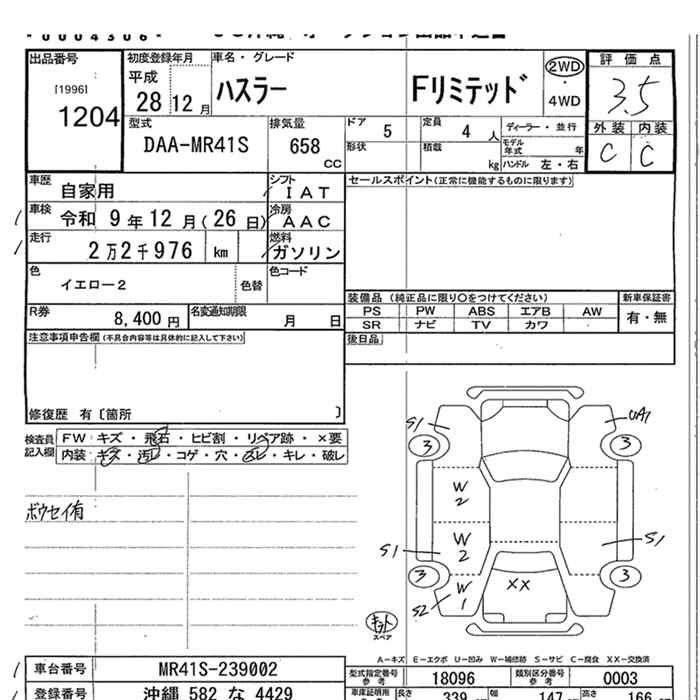 出品番号
[1996]
1204
初度登録年月
平成
28 12 月
車名・グレード
ハスラー Fリミテッド
2WD
・
4WD
評価点
3.5
外装 内装
C C
型式
DAA-MR41S
排気量
658
CC
ドア 5
定員 4 人
形状
積載 kg
ディーラー・並行
モデル年式 年
ハンドル 左・右
車歴 自家用
シフト IAT
車検 令和 9年 12月(26日)
冷房 AAC
走行 2万2千976 km
燃料 ガソリン
色 イエロー2
色替
色コード
R券 8,400 円
名変通知期限 月 日
セールスポイント(正常に機能するものに限ります)
装備品 (純正品に限り○をつけてください)
新車保証書
PS PW ABS エアB AW
SR ナビ TV カワ
有・無
後日品
注意事項申告欄(不具合内容等は具体的に記入して下さい)
修復歴 有〔箇所 〕
検査員記入欄
FW キズ・飛石・ヒビ割・リペア跡・×要
内装 キズ・汚レ・コゲ・穴・スレ・キレ・破レ
ボウセイ有
S1 UA1
3 3
W2
W2
S1 S1
3 3
S2 W1
XX
キット
スペア
A-キズ E-エクボ U-凹み W-補修跡 S-サビ C-腐食 XX-交換済
車台番号 MR41S-239002
型式指定番号参考 18096
類別区分番号参考 0003
登録番号 沖縄 582 な 4429
車庫証明用 長さ 339 幅 147 高さ 166